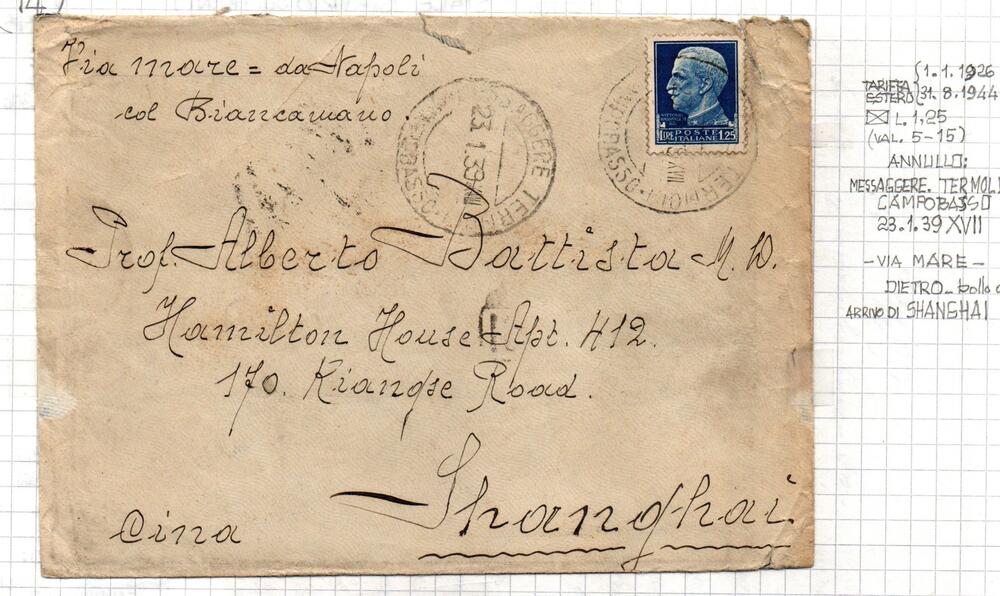 147
Via mare = da Napoli
col Biancamano.
23.1.39
TERMOLI
LIRE POSTE ITALIANE 1.25
XVII
Prof. Alberto Battista M. D.
Hamilton House - Apt. 412.
170. Kiangse Road.
Shanghai.
Cina
TARIFFA ESTERO
1.1.1926
31.8.1944
L. 1,25
(VAL. 5-15)
ANNULLO:
MESSAGGERE. TERMOLI
CAMPOBASSO
23.1.39 XVII
- VIA MARE -
DIETRO - bollo
ARRIVO DI SHANGHAI